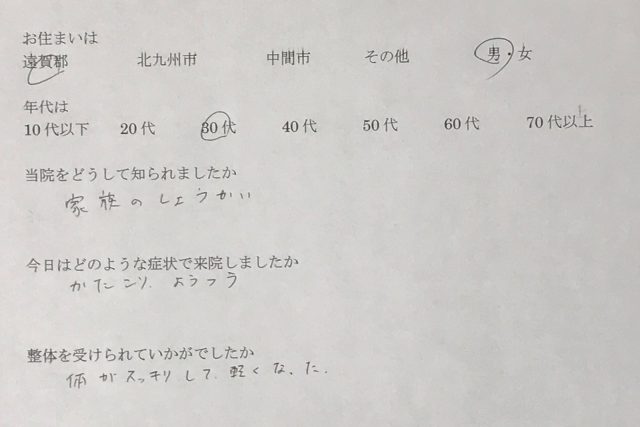 お住まいは
遠賀郡 北九州市 中間市 その他 男・女
年代は
10代以下 20代 30代 40代 50代 60代 70代以上
当院をどうして知られましたか
家族のしょうかい
今日はどのような症状で来院しましたか
かたこり、ようつう
整体を受けられていかがでしたか
体がスッキリして、軽くなった。